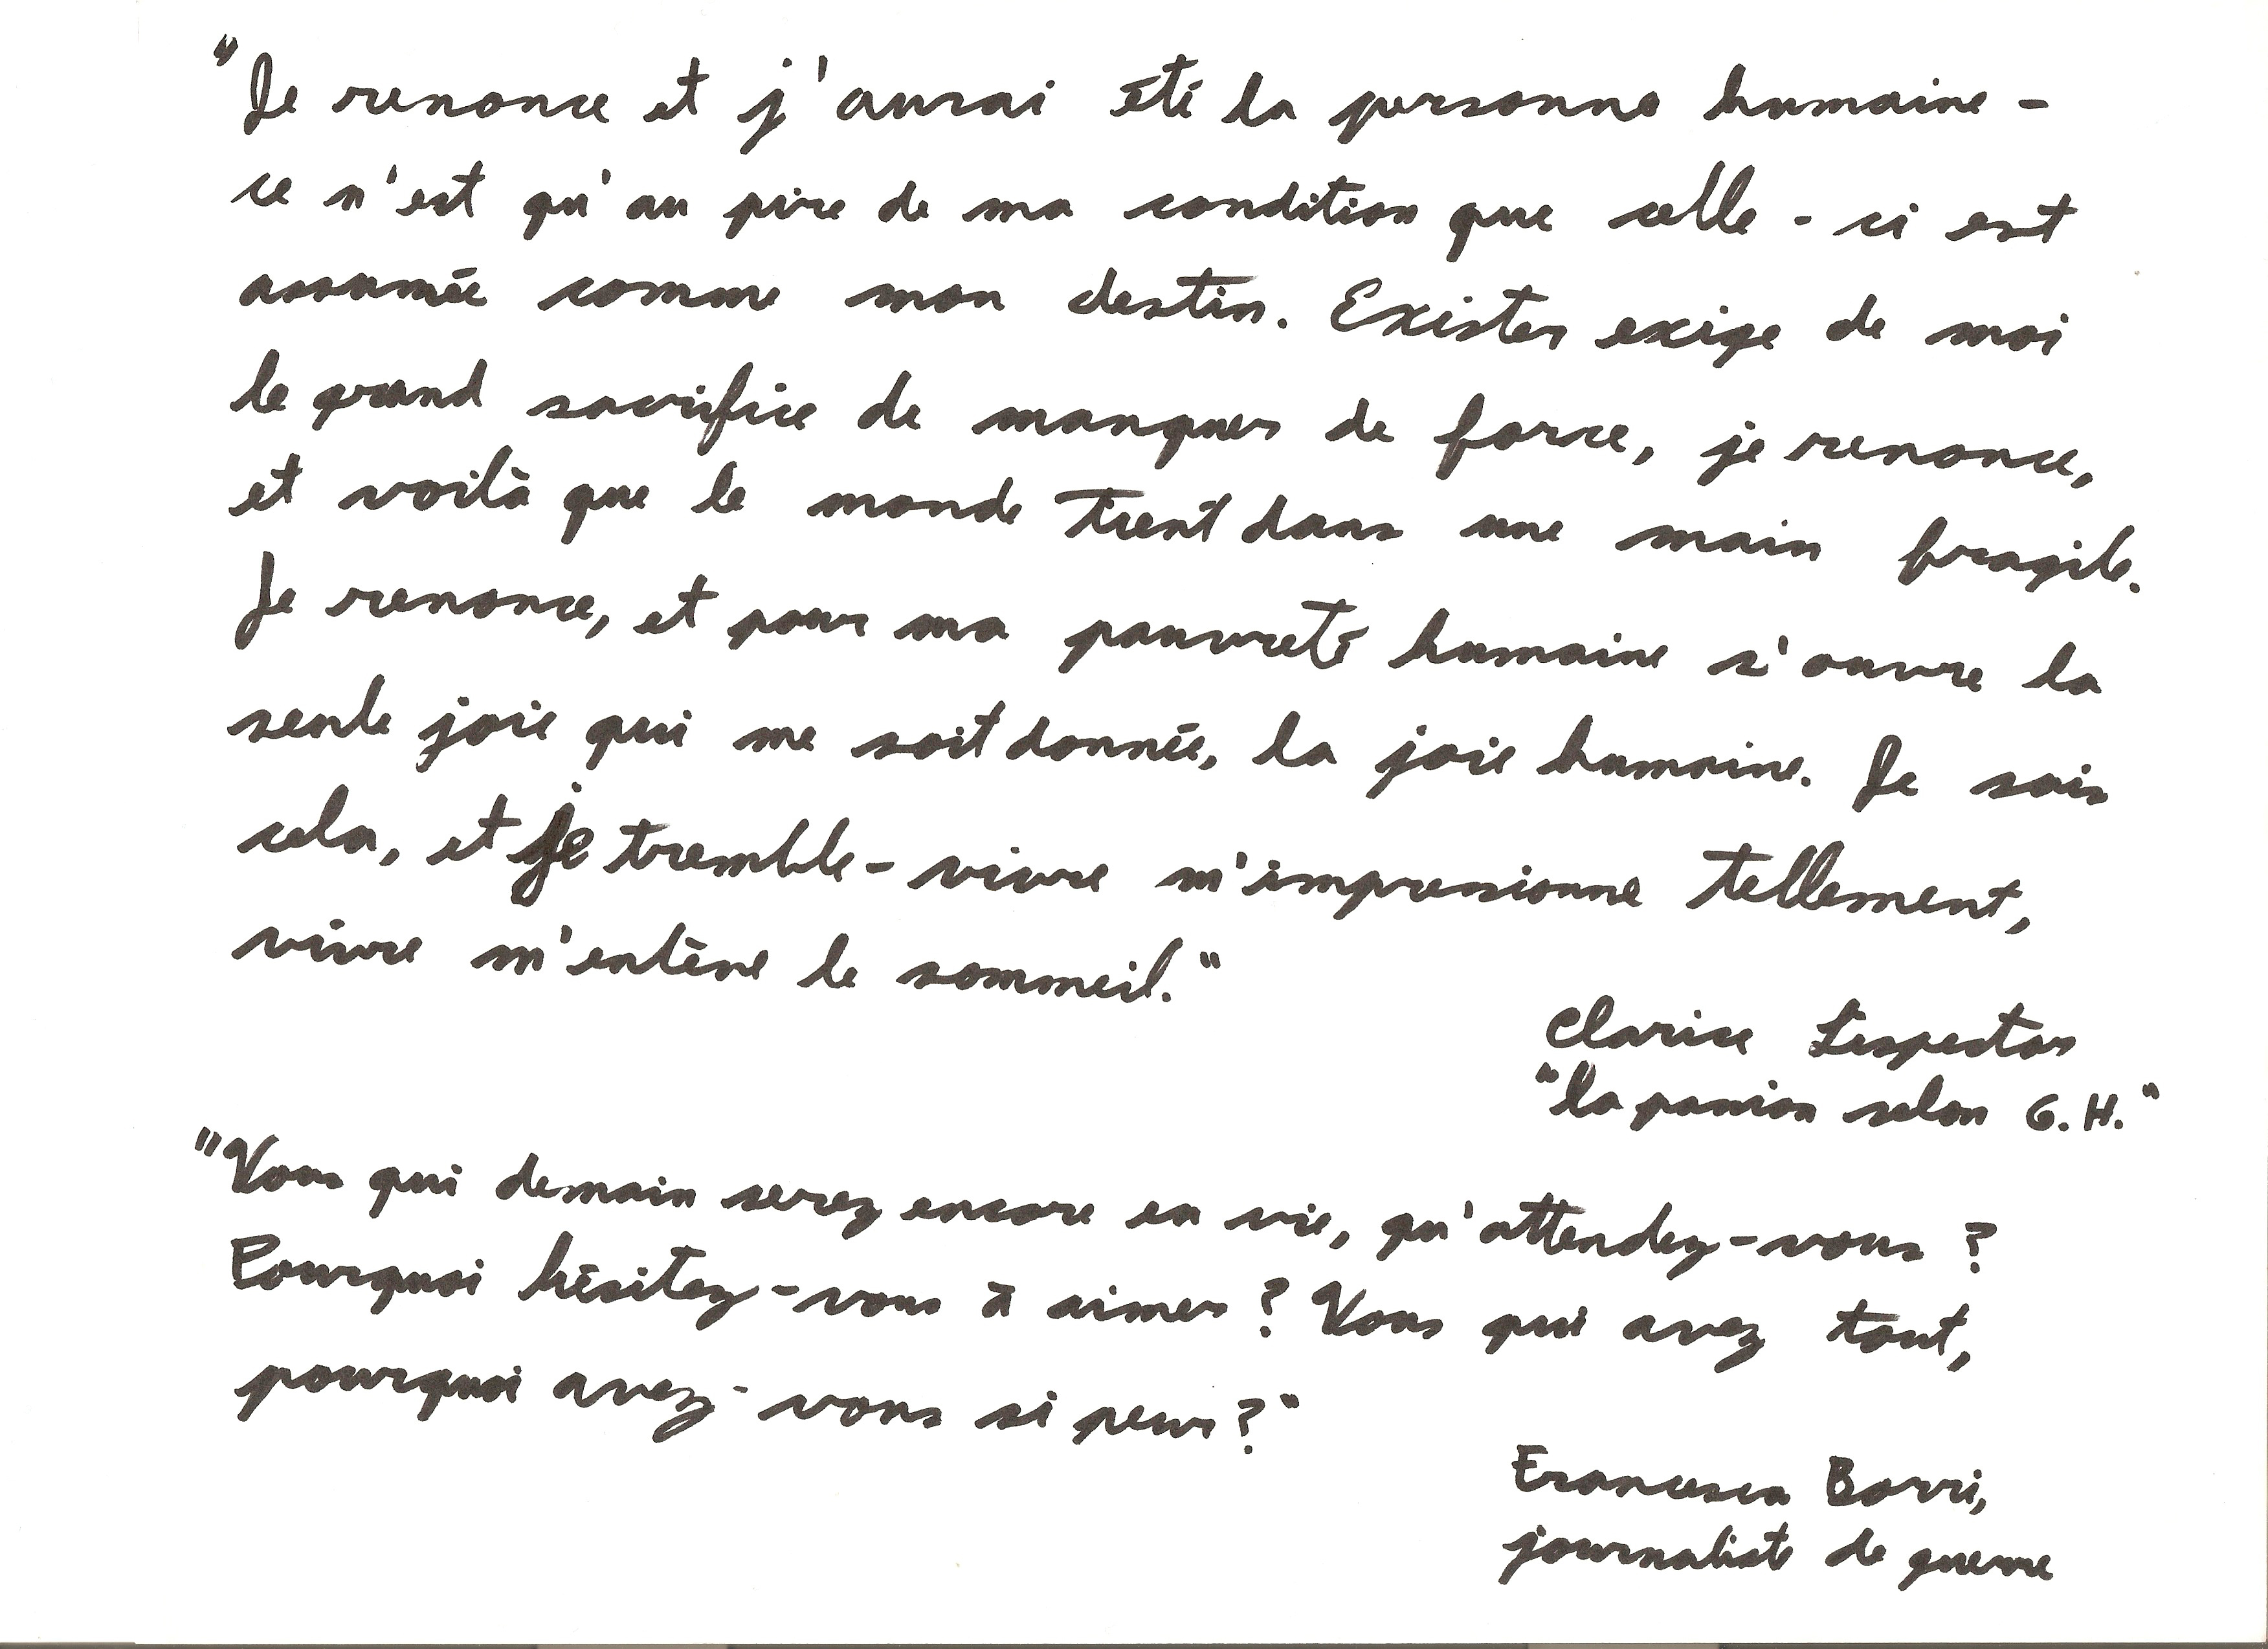 "Je renonce et j'aurai été la personne humaine -
ce n'est qu'au pire de ma condition que celle-ci est
assumée comme mon destin. Exister exige de moi
le grand sacrifice de manquer de force, je renonce,
et voilà que le monde tient dans une main fragile.
Je renonce, et pour ma pauvreté humaine s'ouvre la
seule joie qui me soit donnée, la joie humaine. Je sais
cela, et je tremble - vivre m'impressionne tellement,
vivre m'enlève le sommeil."
Clarice Lispector
"la passion selon G.H."
"Vous qui demain serez encore en vie, qu'attendez-vous ?
Pourquoi hésitez-vous à aimer ? Vous qui avez tout,
pourquoi avez-vous si peur ?"
Francesca Borri,
journaliste de guerre